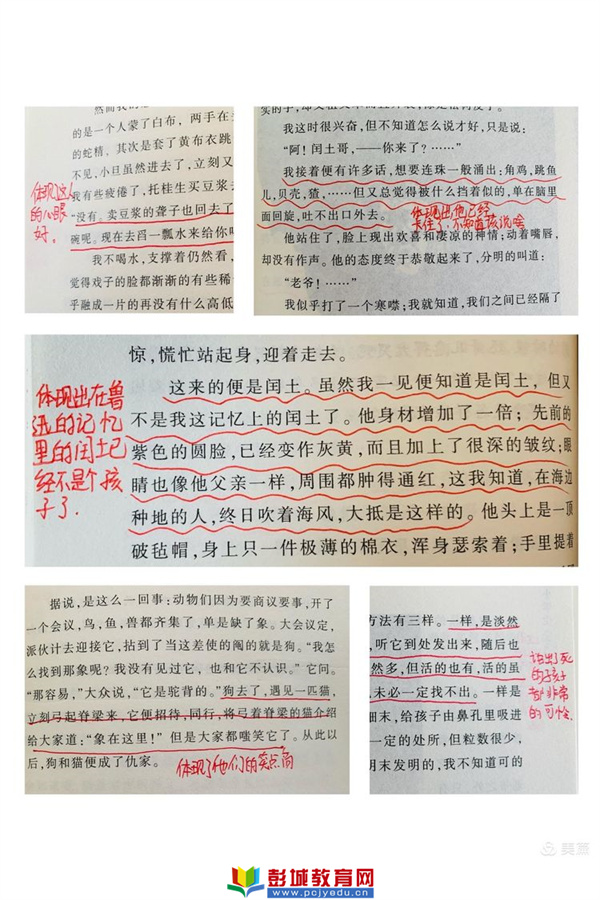 的是一个人蒙了白布，两手在
的蛇精。其次是套了黄布衣跳
不见，小旦虽然进去了，立刻又
我有些疲倦了，托桂生买豆浆去
“没有。卖豆浆的聋子也回去了
碗呢。现在去舀一瓢水来给你喝
我不喝水，支撑着仍然看，
觉得戏子的脸都渐渐的有些稀
乎融成一片的再没有什么高低
体现这人
的心眼
好.
我这时很兴奋，但不知道怎么说才好，只是说：
“阿！闰土哥，——你来了？……”
我接着便有许多话，想要连珠一般涌出：角鸡，跳鱼
儿，贝壳，猹，……但又总觉得被什么挡着似的，单在脑里
面回旋，吐不出口外去。
体现出他已经
卡住了.不知道该说啥
他站住了，脸上现出欢喜和凄凉的神情；动着嘴唇，
却没有作声。他的态度终于恭敬起来了，分明的叫道：
“老爷！……”
我似乎打了一个寒噤；我就知道，我们之间已经隔了
惊，慌忙站起身，迎着走去。
这来的便是闰土。虽然我一见便知道是闰土，但又
不是我这记忆上的闰土了。他身材增加了一倍；先前的
紫色的圆脸，已经变作灰黄，而且加上了很深的皱纹；眼
睛也像他父亲一样，周围都肿得通红，这我知道，在海边
种地的人，终日吹着海风，大抵是这样的。他头上是一顶
破毡帽，身上只一件极薄的棉衣，浑身瑟索着；手里提着
体现出在鲁
迅的记忆
里的闰土已
经不是个孩
子了.
据说，是这么一回事：动物们因为要商议要事，开了
一个会议，鸟，鱼，兽都齐集了，单是缺了象。大会议定，
派伙计去迎接它，拈到了当这差使的阄的就是狗。“我怎
么找到那象呢？我没有见过它，也和它不认识。”它问。
“那容易，”大众说，“它是驼背的。”狗去了，遇见一匹猫，
立刻弓起脊梁来，它便招待，同行，将弓着脊梁的猫介绍
给大家道：“象在这里！”但是大家都嗤笑它了。从此以
后，狗和猫便成了仇家。
体现了他们的笑点高
方法有三样。一样，是淡然
，听它到处发出来，随后也
然多，但活的也有，活的虽
，未必一定找不出。一样是
细末，给孩子由鼻孔里吸进
一定的处所，但粒数很少，
明末发明的，我不知道可的
的孩子
都非常
的可怜
美篇
彭城教育网
www.pcjyedu.cn